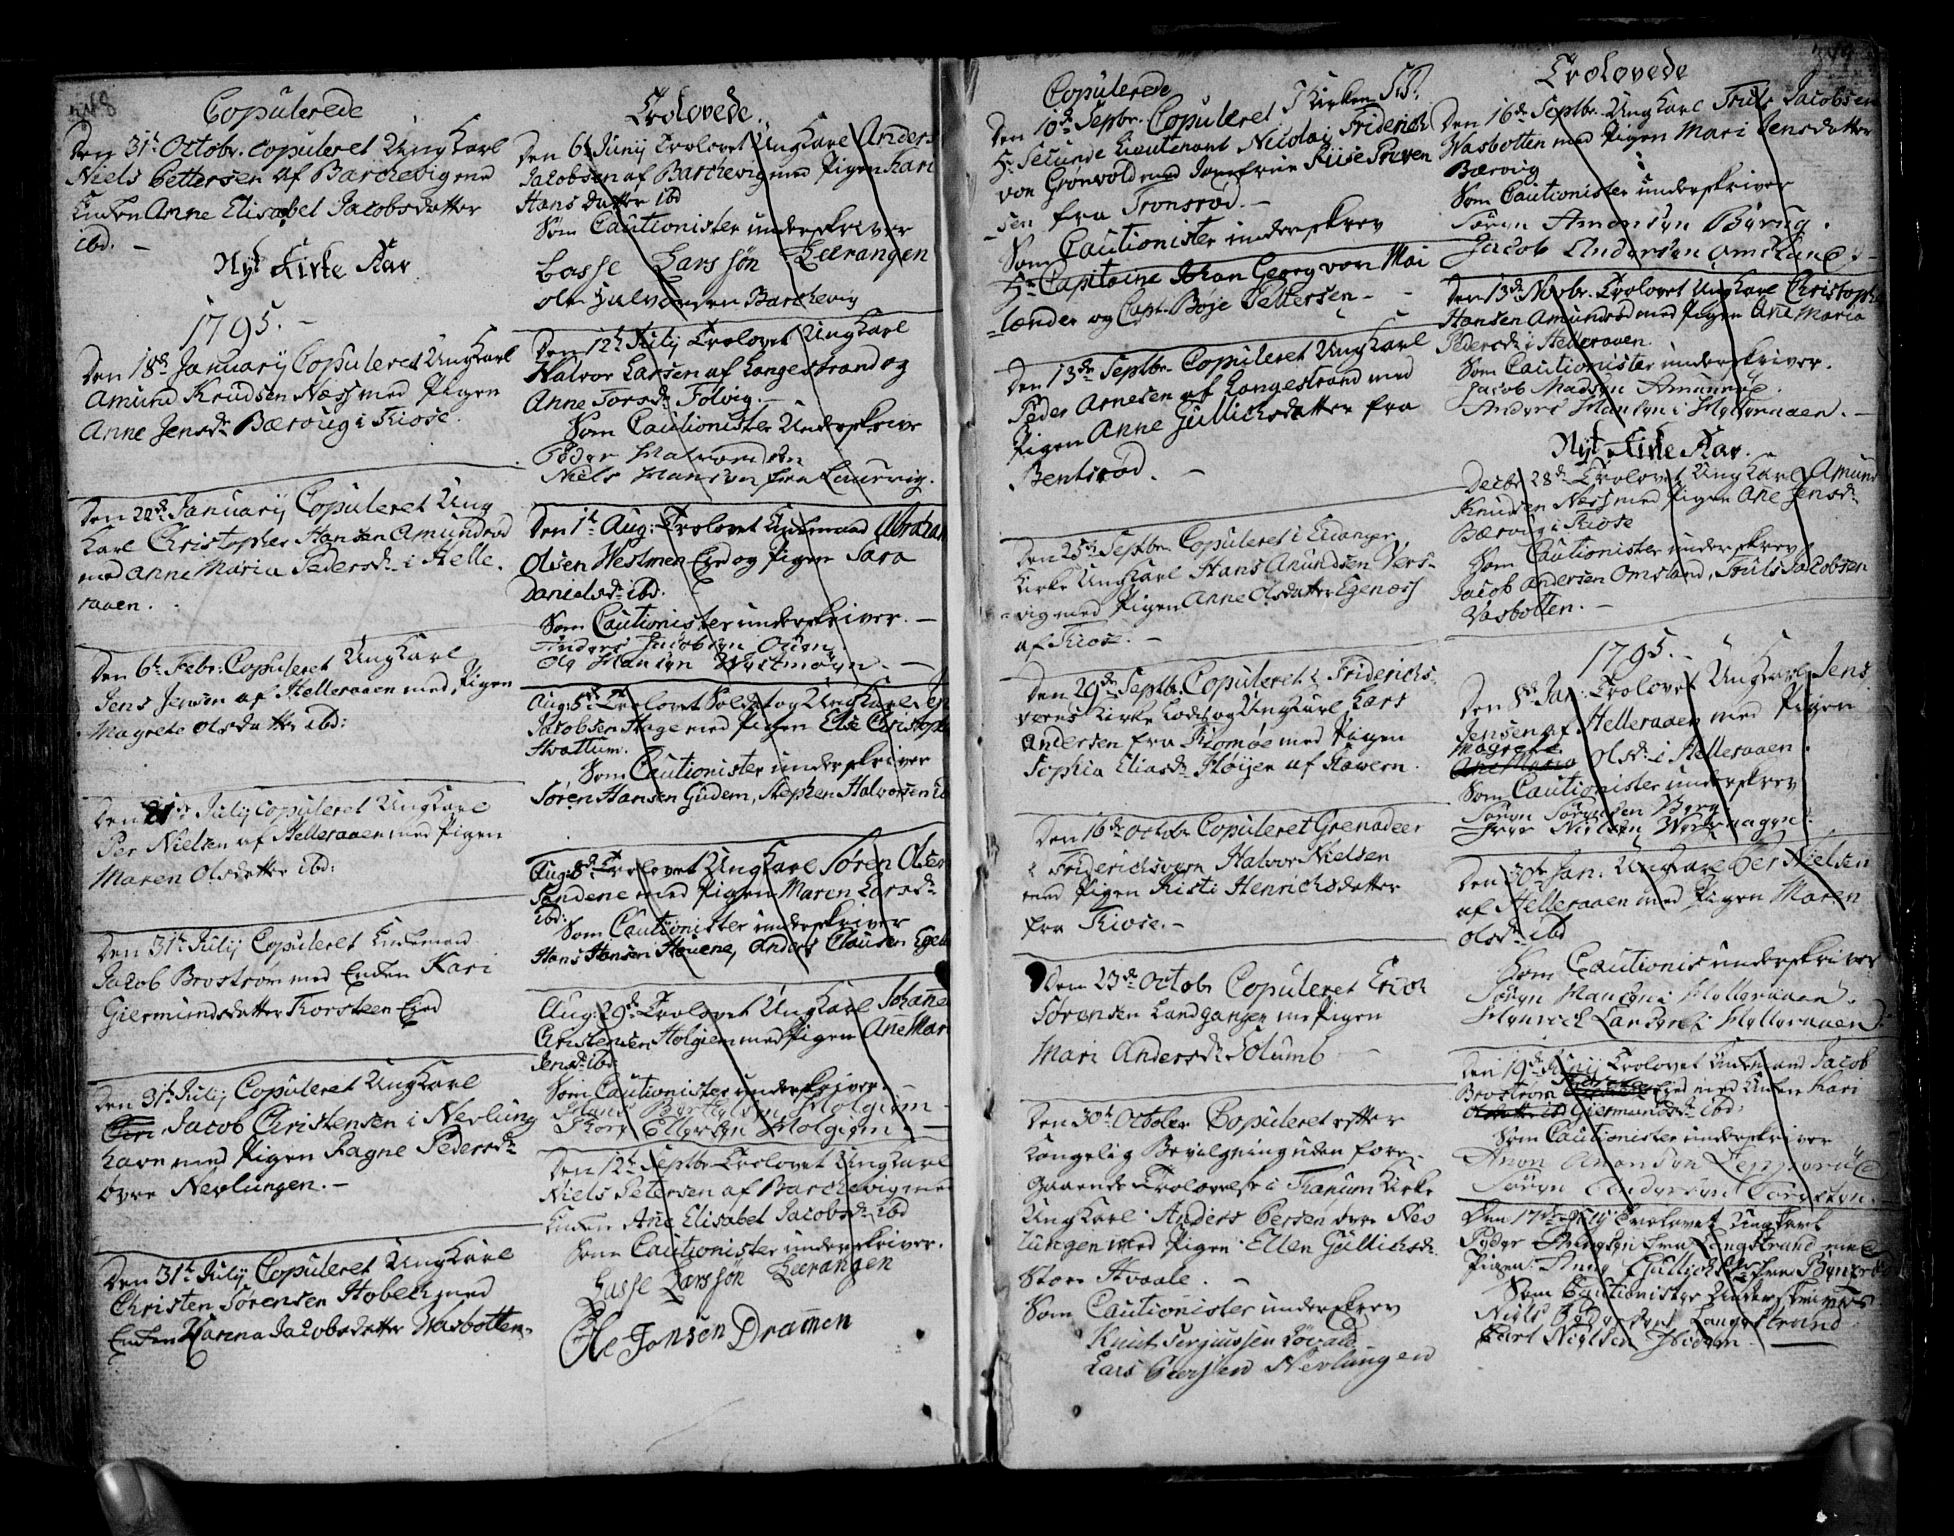 348
Copulerede
Den 31te Octobr. copuleret UngKarl
Niels Pettersen af Barchevig med
Enken Anne Elisabet Jacobsdatter
ibd. —
Nyt Kirke Aar
1795. —
Den 18de Januarij Copuleret UngKarl
Amund Knudsen Næss med Pigen
Anne Jensdr Bærøug i Kiose.
Den 22de Januarij Copuleret Ung
Karl Christopher Hansen Amundrød
med Anne Maria Pedersdr i Helle-
raaen.
Den 6te Febr. Copuleret UngKarl
Jens Jensen af Helleraaen med Pigen
Magrete Olsdatter ibd:
Den 21de July Copuleret UngKarl
Per Nielsen af Helleraaen med Pigen
Maren Olsdatter ibd:
Den 31te Julij Copuleret Enkemand
Jacob Brostrøm med Enken Kari
Giermundsdatter Thorsteen Eyed
Den 31te Julij Copuleret UngKarl
Jacob Christensen i Nevlung
havn med Pigen Ragne Pedersdr
øvre Nevlungen. —
Den 31te Julij Copuleret UngKarl
Christen Sørensen Hobech med
Enken Karena Jacobsdatter Wasbotten.
Trolovede
Den 6te Junij Trolovet UngKarl Anders
Jacobsen af Barchevig med Pigen Kari
Hansdatter ibd
Som Cautionister underskriver
Lasse Larssøn Leerangen
ole Halvorsen Barchevig
Den 12te Julij Trolovet UngKarl
Halvor Larsen af Langestrand og
Anne Torsdr Følvig. —
Som Cautionister Underskrive
Peder Halvordsen
Niels Hansen fra Laurvig.
Den 1te Aug: Trolovet Enkemand Abraham
Olsen Westmen Eye og Pigen Sara
Danielsdr ibd.
Som Cautionister underskriver. —
Anders Jacobsen Oien
Ole Hansen Westmøyn. —
Aug: 5te Trolovet Soldat og UngKarl Jens
Jacobsen Hage med Pigen Else Christoph
Hvattum.
Som Cautionister underskriver
Søren Hansen Gudem, Stephen Halvorsen ib
Aug: 8de Trolovet UngKarl Søren Olsen
Sandene med Pigen Maren Larsdr
ibd:
Som Cautionister underskriver
Hans Hansen Houene, Anders Clausen Egen
Aug: 29de Trolovet UngKarl Johanne
Christensen Holgien med Pigen Ane Mari
Jensdr ibd
Som Cautionister underskriver. —
Hans Bertelsen Holgien —
Thore Ellefsen Holgien. —
Den 12te Septbr Trolovet UngKarl
Niels Petersen af Barchevig med
Enken Ane Elisabet Jacobsdr ibd
Som Cautionister underskriver.
Lasse Larssøn Leerangen
Ole Jonsen Dramen
Copulerede
Den 10de Septbr. Copuleret i Kirken
Hr Secunde Lieutenant Nicolai Friderich
von Grønvold med Jomfrue Riise Preven
sen fra Tronsrød. —
Som Cautionister underskrev
Hr Capitaine Johan Georg von Mai
lænder og Capt. Boje Pettersen —
Den 13de Septbr. Copuleret UngKarl
Peder Arnesen af Langestrand med
Pigen Anne Gullichsdatter fra
Bentsrød. —
Den 25te Septbr. Copuleret i Eidanger
Kirke UngKarl Hans Anundsen Vers-
vig med Pigen Anne Olsdatter Egenæss
af Kiose. —
Den 29de Septbr. Copuleret i Friderichs
værns Kirke Lods og UngKarl Lars
Andersen fra Kiomøe med Pigen
Sophia Eliasdr Høijer af Stavern.
Den 16de Octobr Copuleret Grenadeer
i Friderichsvern Halvor Nielsen
med Pigen Kisti Henrichsdatter
fra Kiose. —
Den 23de Octobr Copuleret Erich
Sørensen Landganger me Pigen
Mari Andersdr Solumb —
Den 30te October Copuleret efter
Kongelig Bevilgning uden fore-
gaaende Trolovelse i Tranum Kirke
UngKarl Anders Persen øvre Nev
lungen med Pigen Ellen Gullichsdr
Store Hvaale. —
Som Cautionister underskrev
Knut Torgiussen Løvald
Lars Pærssen Nevlungen
349
Trolovede
Den 16de Septbr. UngKarl Truls Jacobsen
Wasbotten med Pigen Mari Jensdatter
Bærøvig
Som Cautionister underskriver
Søren Amondsen Børug.
Jacob Andersen omsland. —
Den 13de Novbr. Trolovet UngKarl Christoph
Hansen Amundrød med Pigen Ane Maria
Pedersdr i Helleraaen.
Som Cautionister underskriver.
Jacob Madsen Amunrød.
Anders Hansen i Helleraaen. —
Nyt Kirke Aar.
Decbr 28de Trolovet UngKarl Amund
Knudsen Næss med Pigen Ane Jensdr
Bærøvig i Kiose
Som Cautionister underskrev
Jacob Andersen Omsland, Truls Jacobsen
Vasbotten. —
1795. —
Den 8de Jan: Trolovet UngKarl Jens
Jensen af Helleraaen med Pigen
Magrete
Ane Maria Olsdr i Helleraaen.
Som Cautionister underskrev
Søren Sørensen Berg
Iver Nielsen
Den 30te Jan: UngKarl Per Nielsen
af Helleraaen med Pigen Maren
Olsdr ibd
Som Cautionis underskriver
Søren Hansen i Helleraaen.
Henrick Larsen i Helleraaen.
Den 19de Junij Trolovet Enkemand Jacob
Brostrøm Eyed med Enken Kari
Giermundsdr ibd:
Som Cautionister underskriver
Anon Anonsen
Søren Andersen Torsten. —
Den 17de July Trolovet Ungkarl
Peder Arnesen fra Langstrand med
Pigen Anne Gullichsdr fra Bentsrød
Som Cautionister Underskriver
Niels Pedersen Langestrand
Carl Nielsen Ibidem. —